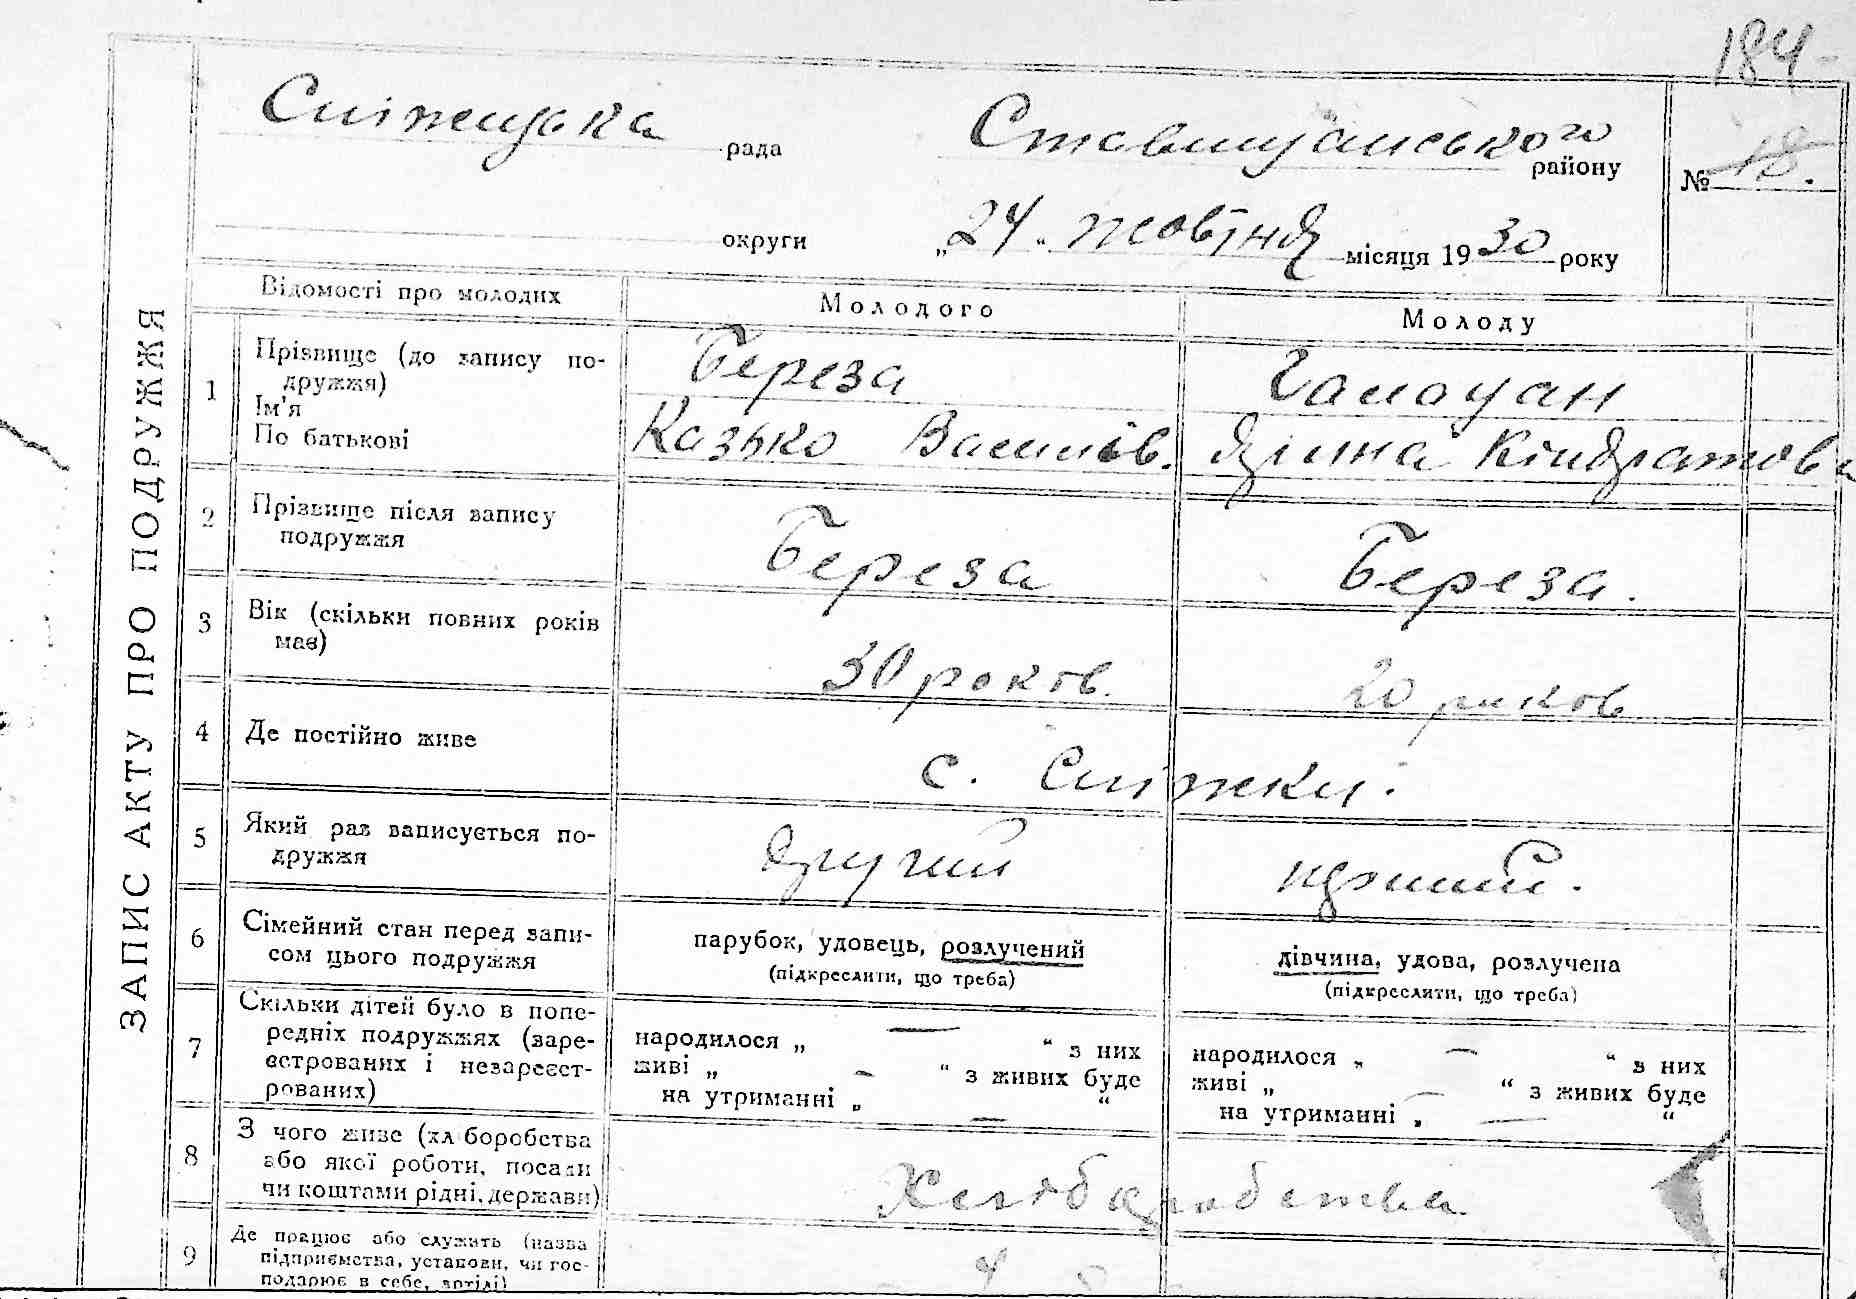 184
Сніжецька рада Ставищанського району № 18.
округи „24“ жовтня місяця 1930 року
ЗАПИС АКТУ ПРО ПОДРУЖЖЯ
Відомості про молодих Молодого Молоду
1 Прізвище (до запису по-
дружжя)
Ім'я
По батькові
Береза
Казько Василів.
Ярина Кіндратов
2 Прізвище після запису
подружжя
Береза Береза.
3 Вік (скільки повних років
має)
30 років. 20 років
4 Де постійно живе
с. Сніжки.
5 Який раз записується по-
дружжя
другий перший.
6 Сімейний стан перед запи-
сом цього подружжя
парубок, удовець, розлучений
(підкреслити, що треба)
дівчина, удова, розлучена
(підкреслити, що треба)
7 Скільки дітей було в попе-
редніх подружжях (заре-
єстрованих і незареєст-
рованих)
народилося „ — “ з них
живі „ — “ з живих буде
на утриманні „ — “
народилося „ — “ з них
живі „ — “ з живих буде
на утриманні „ — “
8 З чого живе (хліборобства
або якої роботи, посади
чи коштами рідні, держави)
Хліборобства
9 Де працює або служить (назва
підприємства, установи, чи гос-
подарює в себе, артілі)